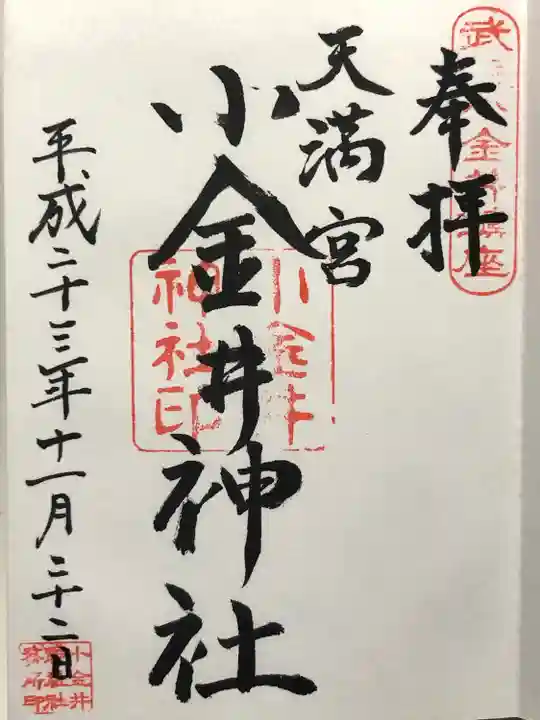 奉拝
武 金井鎮座
天満宮
小金井神社
小金井
神社印
平成二十三年十一月二十二日
小金井
神社社
務所印